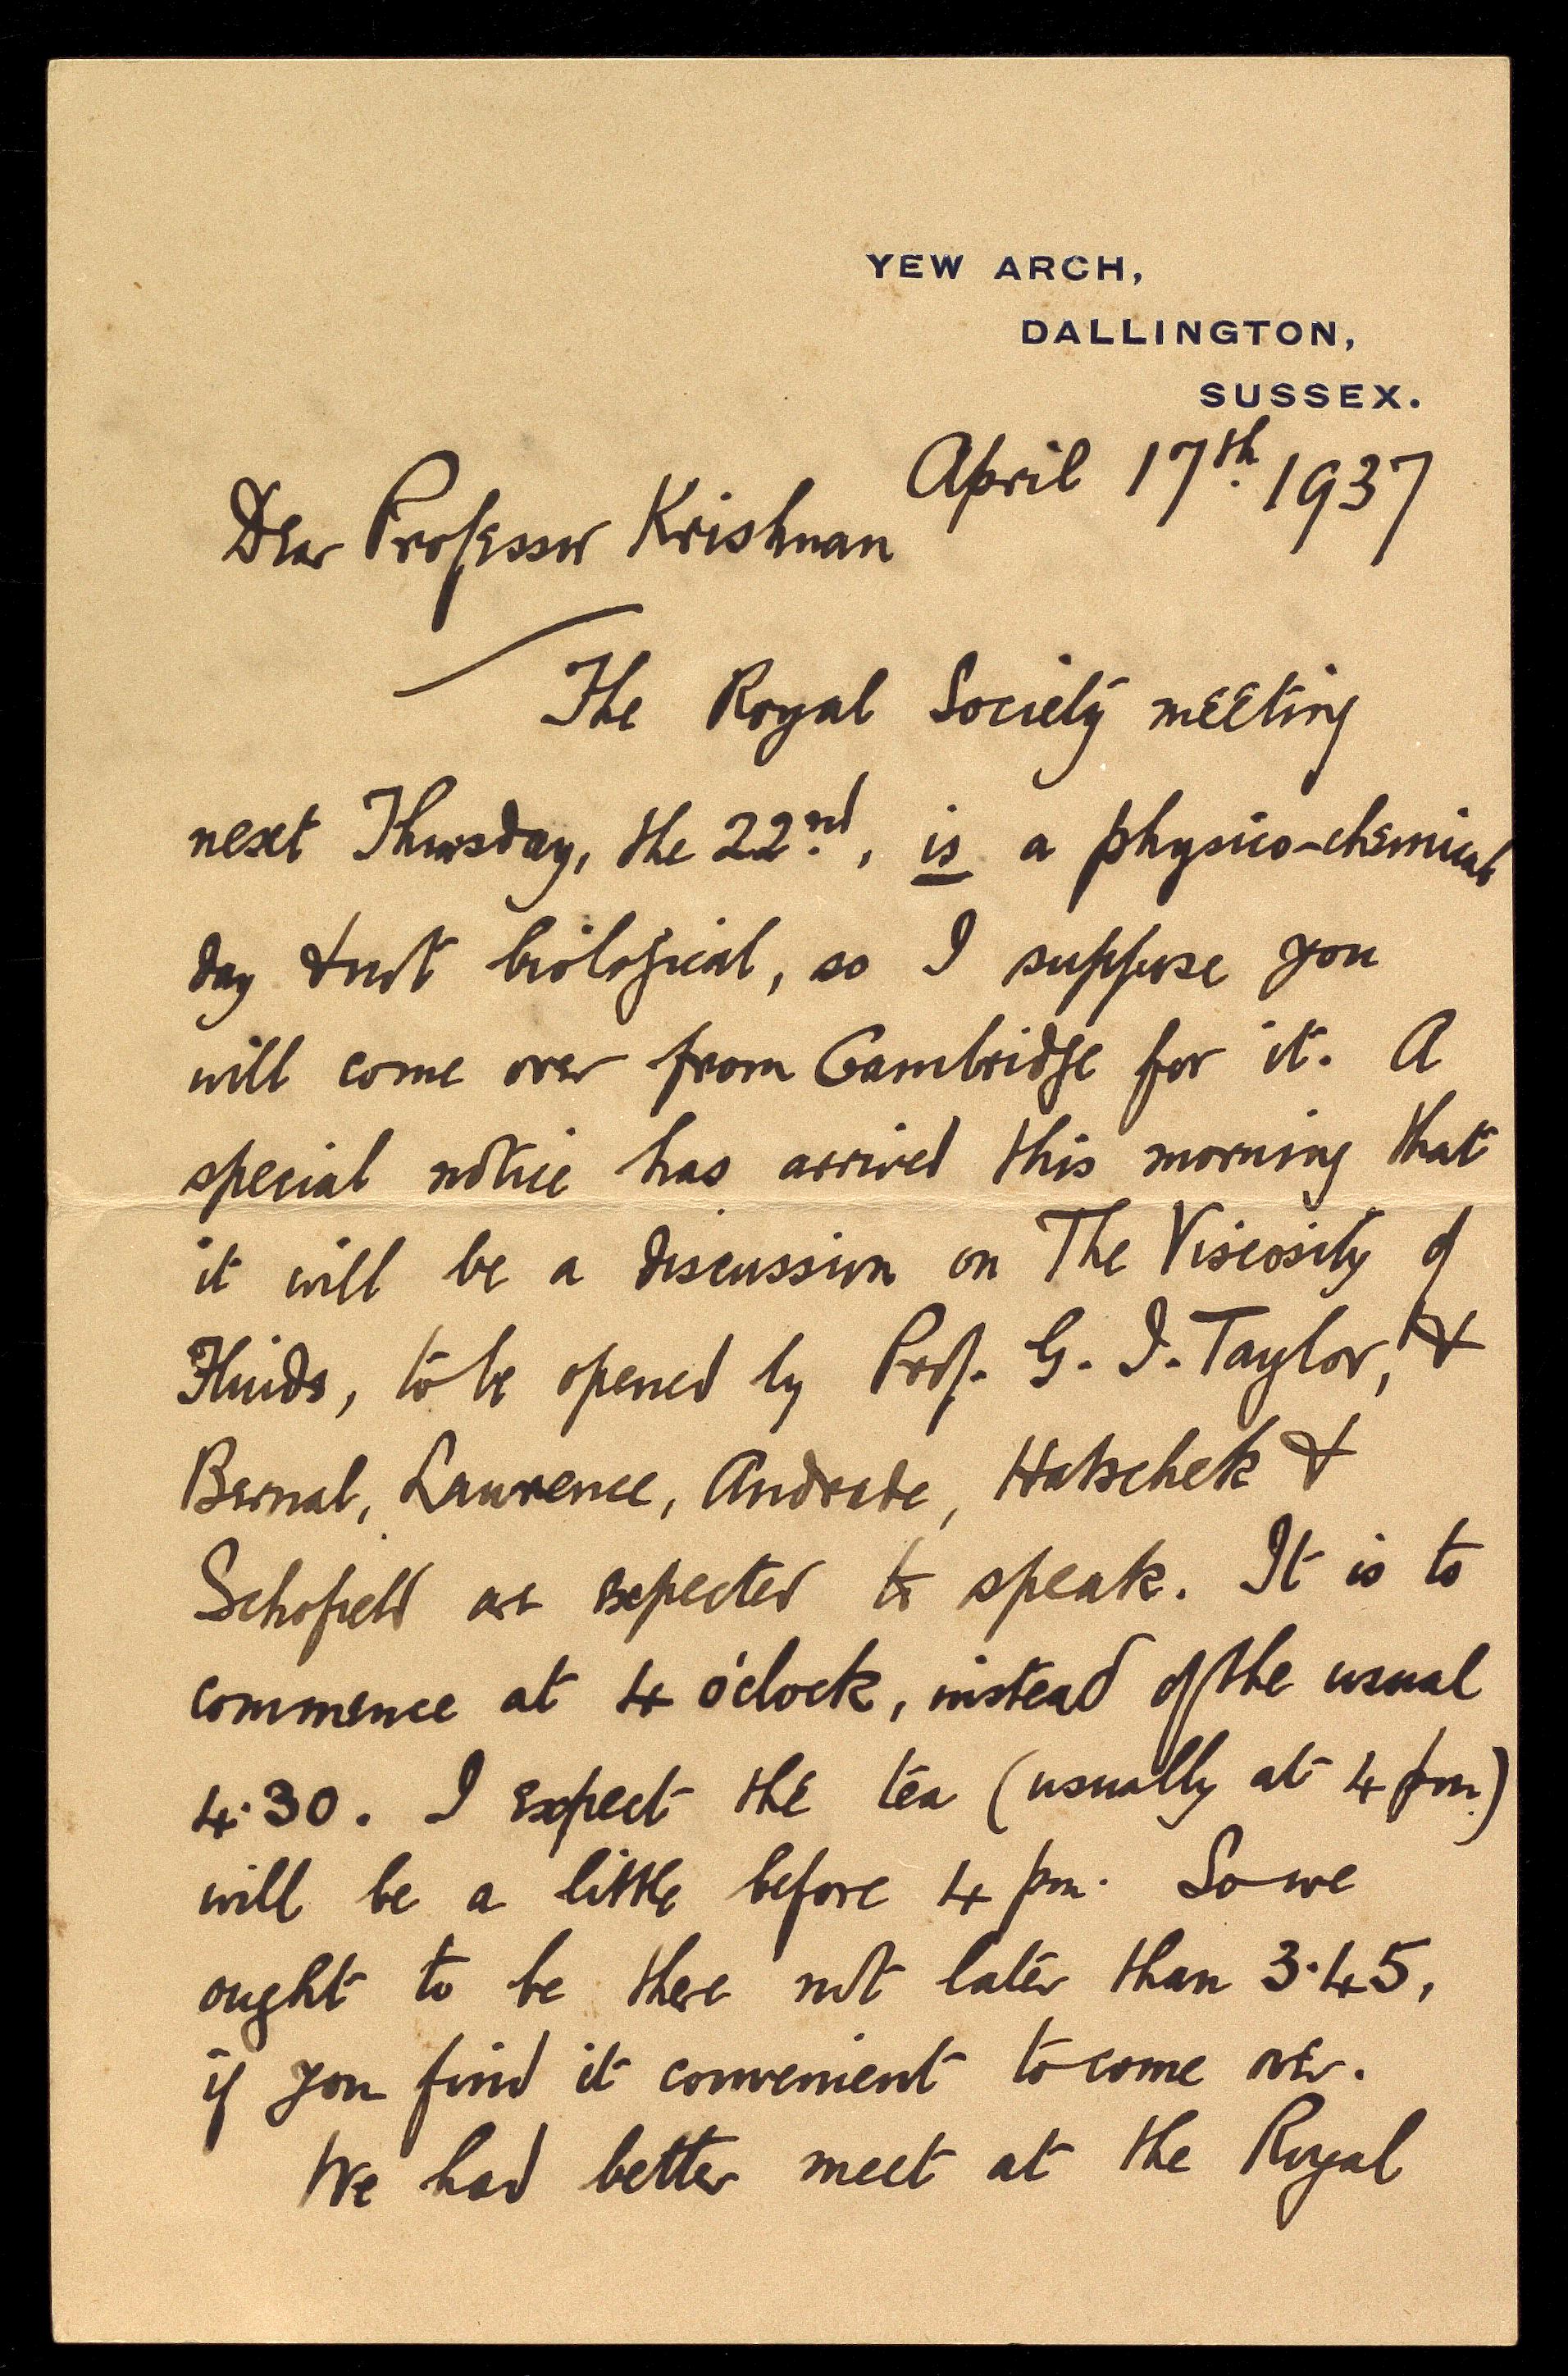 YEW ARCH,
DALLINGTON,
SUSSEX.
April 17th. 1937
Dear Professor Krishnan
The Royal Society meeting
next Thursday, the 22nd, is a physico-chemical
day & not biological, so I suppose you
will come over from Cambridge for it. A
special notice has arrived this morning that
it will be a discussion on The Viscosity of
Fluids, to be opened by Prof. G. I. Taylor, &
Bernal, Lawrence, Andrade, Hatschek &
Schofield are expected to speak. It is to
commence at 4 o'clock, instead of the usual
4.30. I expect the tea (usually at 4 pm.)
will be a little before 4 pm. So we
ought to be there not later than 3.45,
if you find it convenient to come over.
We had better meet at the Royal